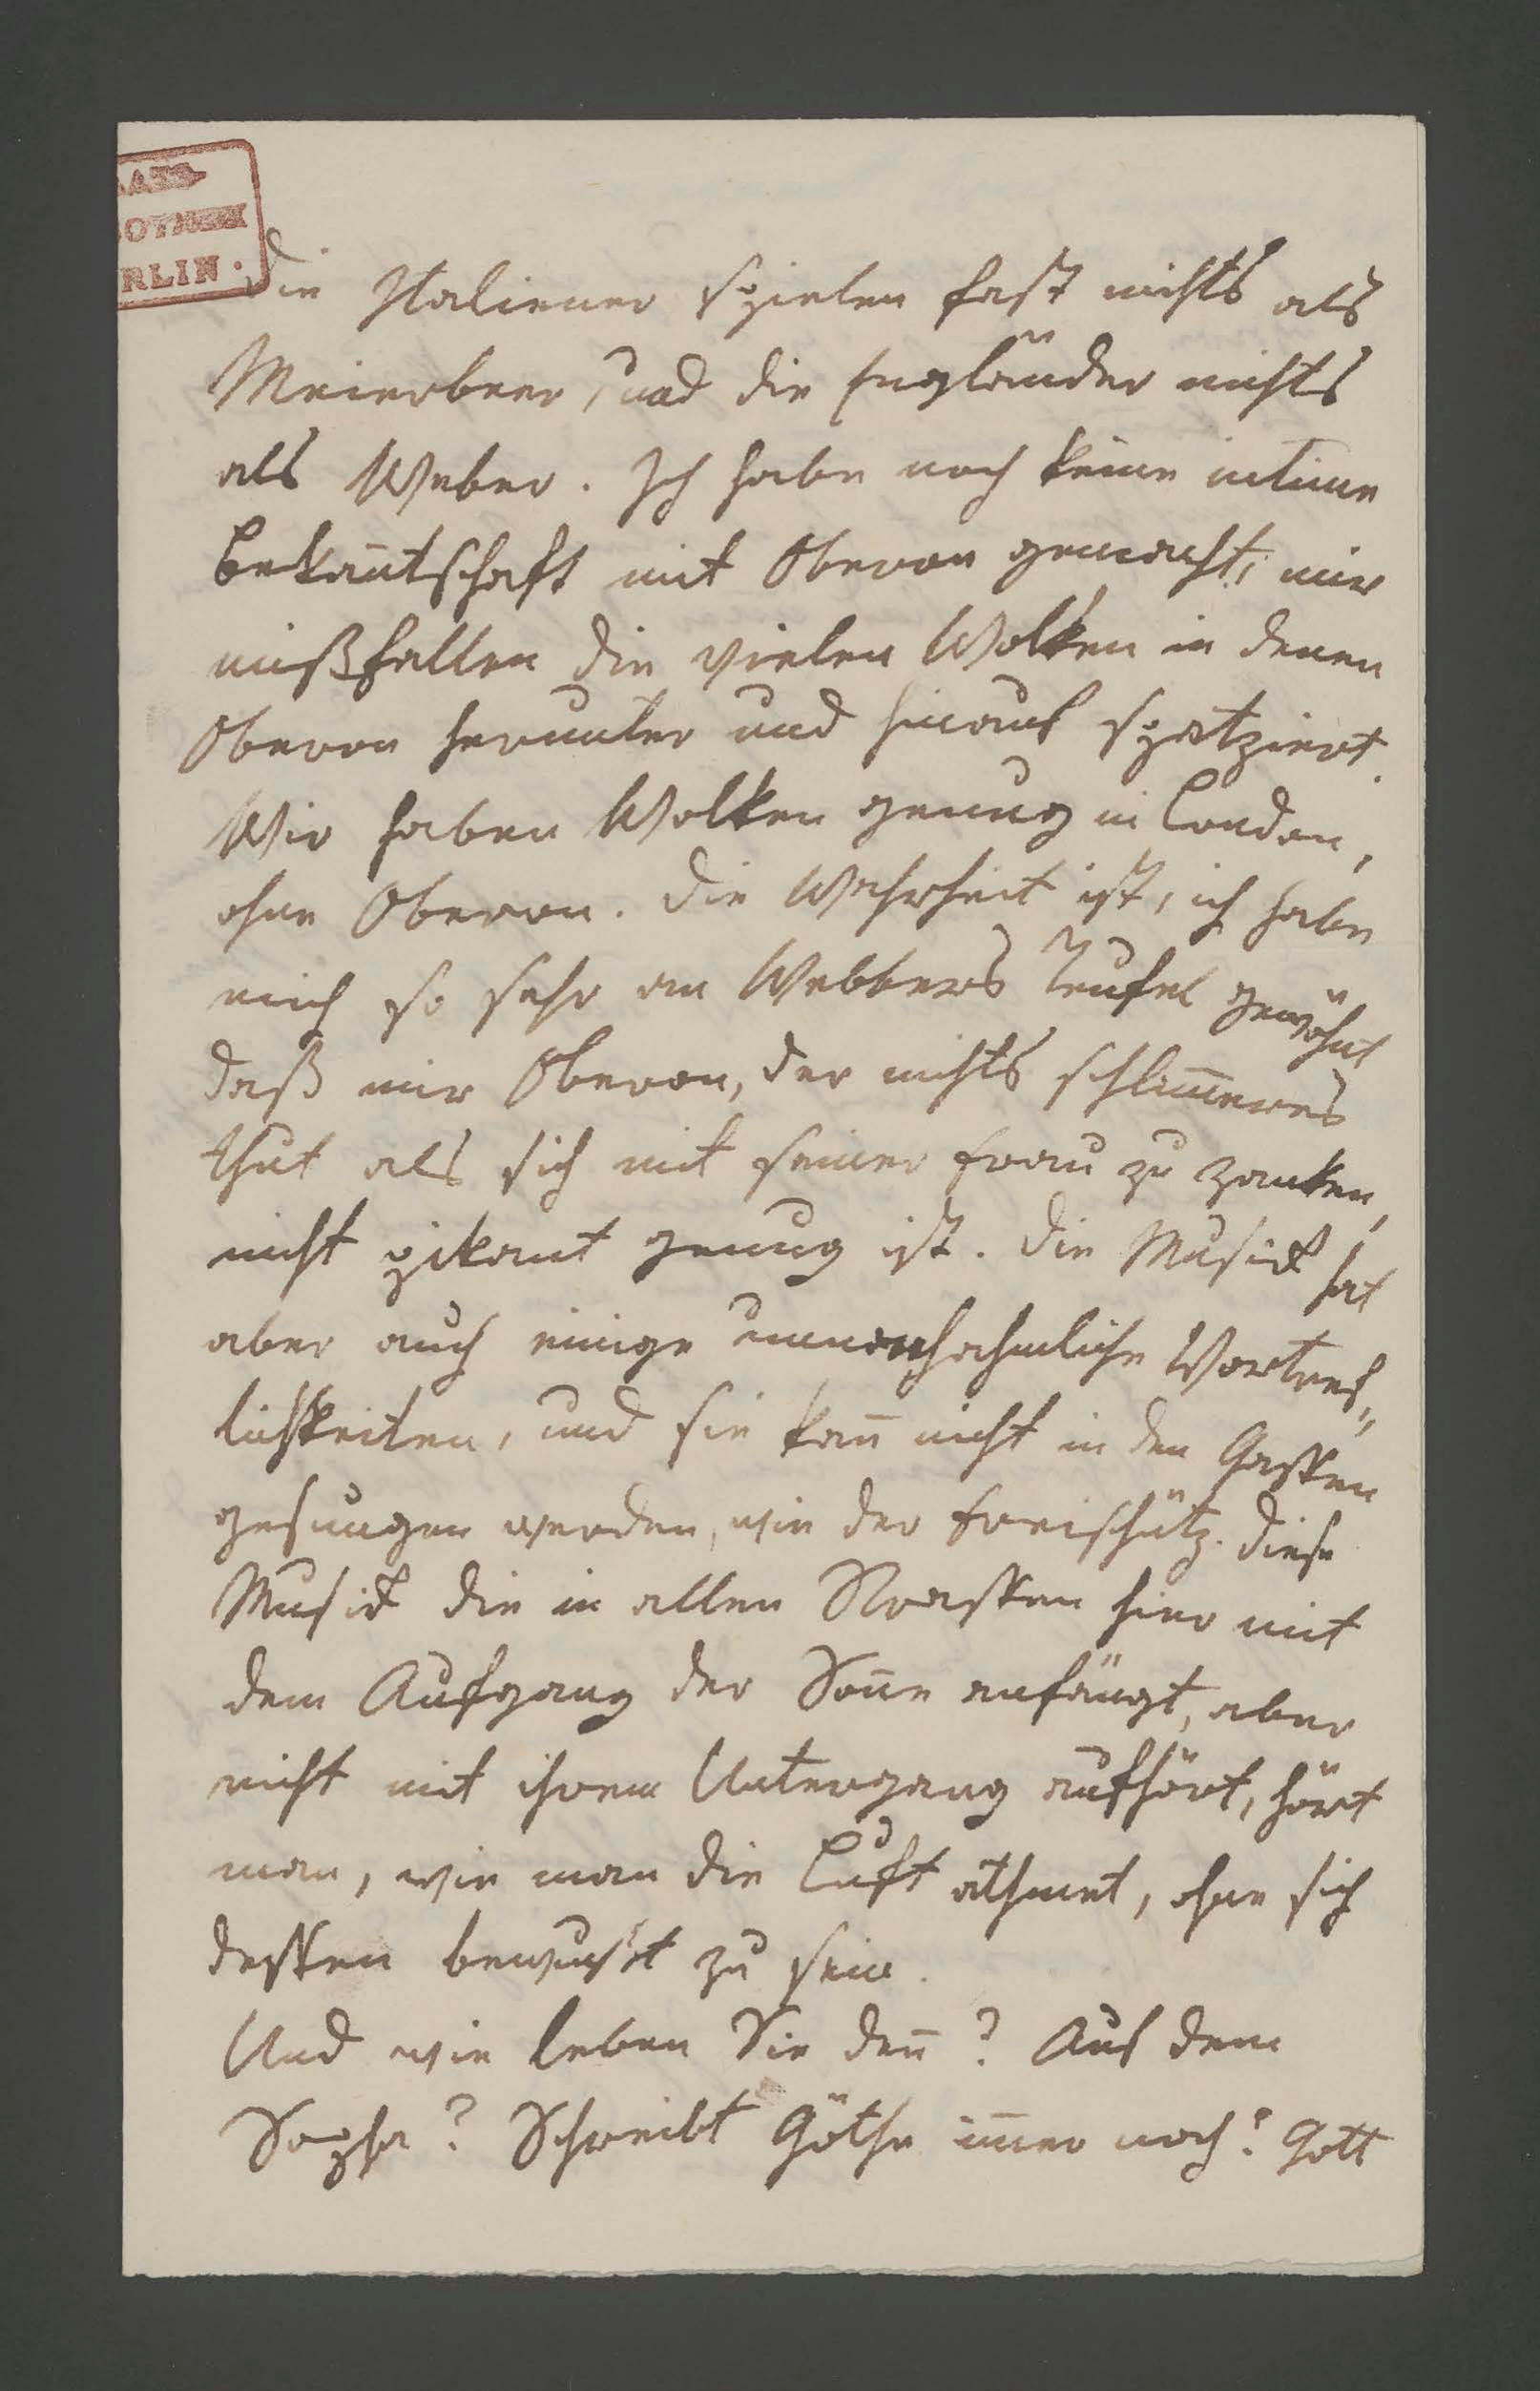 AATS
OTHEK
RLIN.
Die Italiener spielen fast nichts als
Meierbeer, und die Engländer nichts
als Weber. Ich habe noch keine intime
Bekañtschaft mit Oberon gemacht; mir
mißfallen die vielen Wolken in denen
Oberon herunter und hinauf spatziert.
Wir haben Wolken genug in London,
ohne Oberon. Die Wahrheit ist, ich habe
mich so sehr an Webbers Teufel gewöhnt
daß mir Oberon, der nichts schlim̃eres
thut als sich mit seiner Frau zu zanken,
nicht pikant genug ist. Die Musick hat
aber auch einige unnachahmliche Vortref„
lichkeiten, und sie kañ nicht in den Gassen
gesungen werden, wie der Freischütz. Diese
Musick die in allen Strassen hier mit
dem Aufgang der Soñe anfängt, aber
nicht mit ihrem Untergang aufhört, hört
man, wie man die Luft athmet, ohne sich
dessen bewusst zu sein.
Und wie leben Sie deñ? Auf dem
Sopha? Schreibt Göthe im̃er noch? Gott